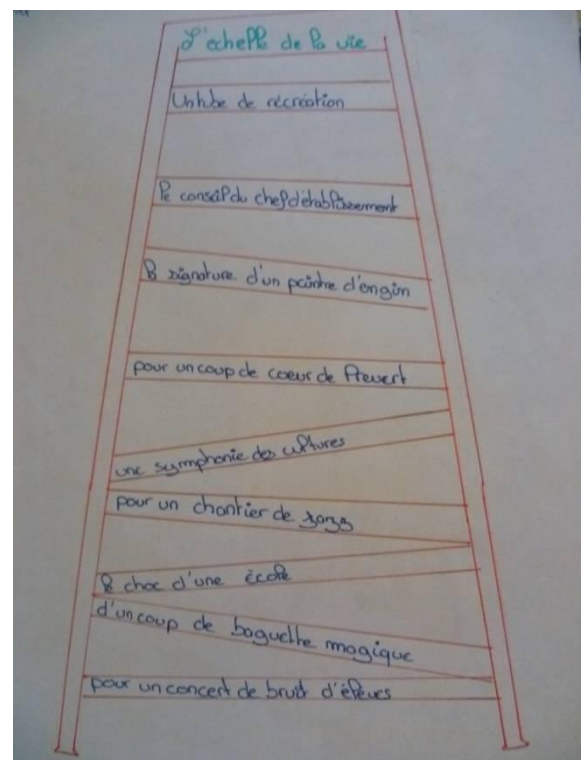 L'échelle de la vie
Un tube de récréation
le conseil du chef d'établissement
la signature d'un peintre d'engin
pour un coup de coeur de Prevert
une symphonie des cultures
pour un chantier de jazz
le choc d'une école
d'un coup de baguette magique
pour un concert de bruit d'élèves